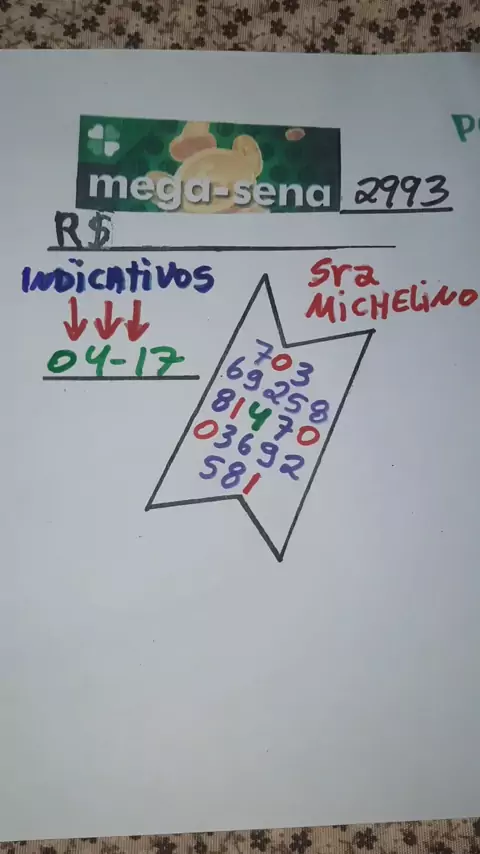 mega-sena 2993
R$
INDiCATiVOS
04-17
Sra
MiCHELiNO
703
69258
81470
03692
581